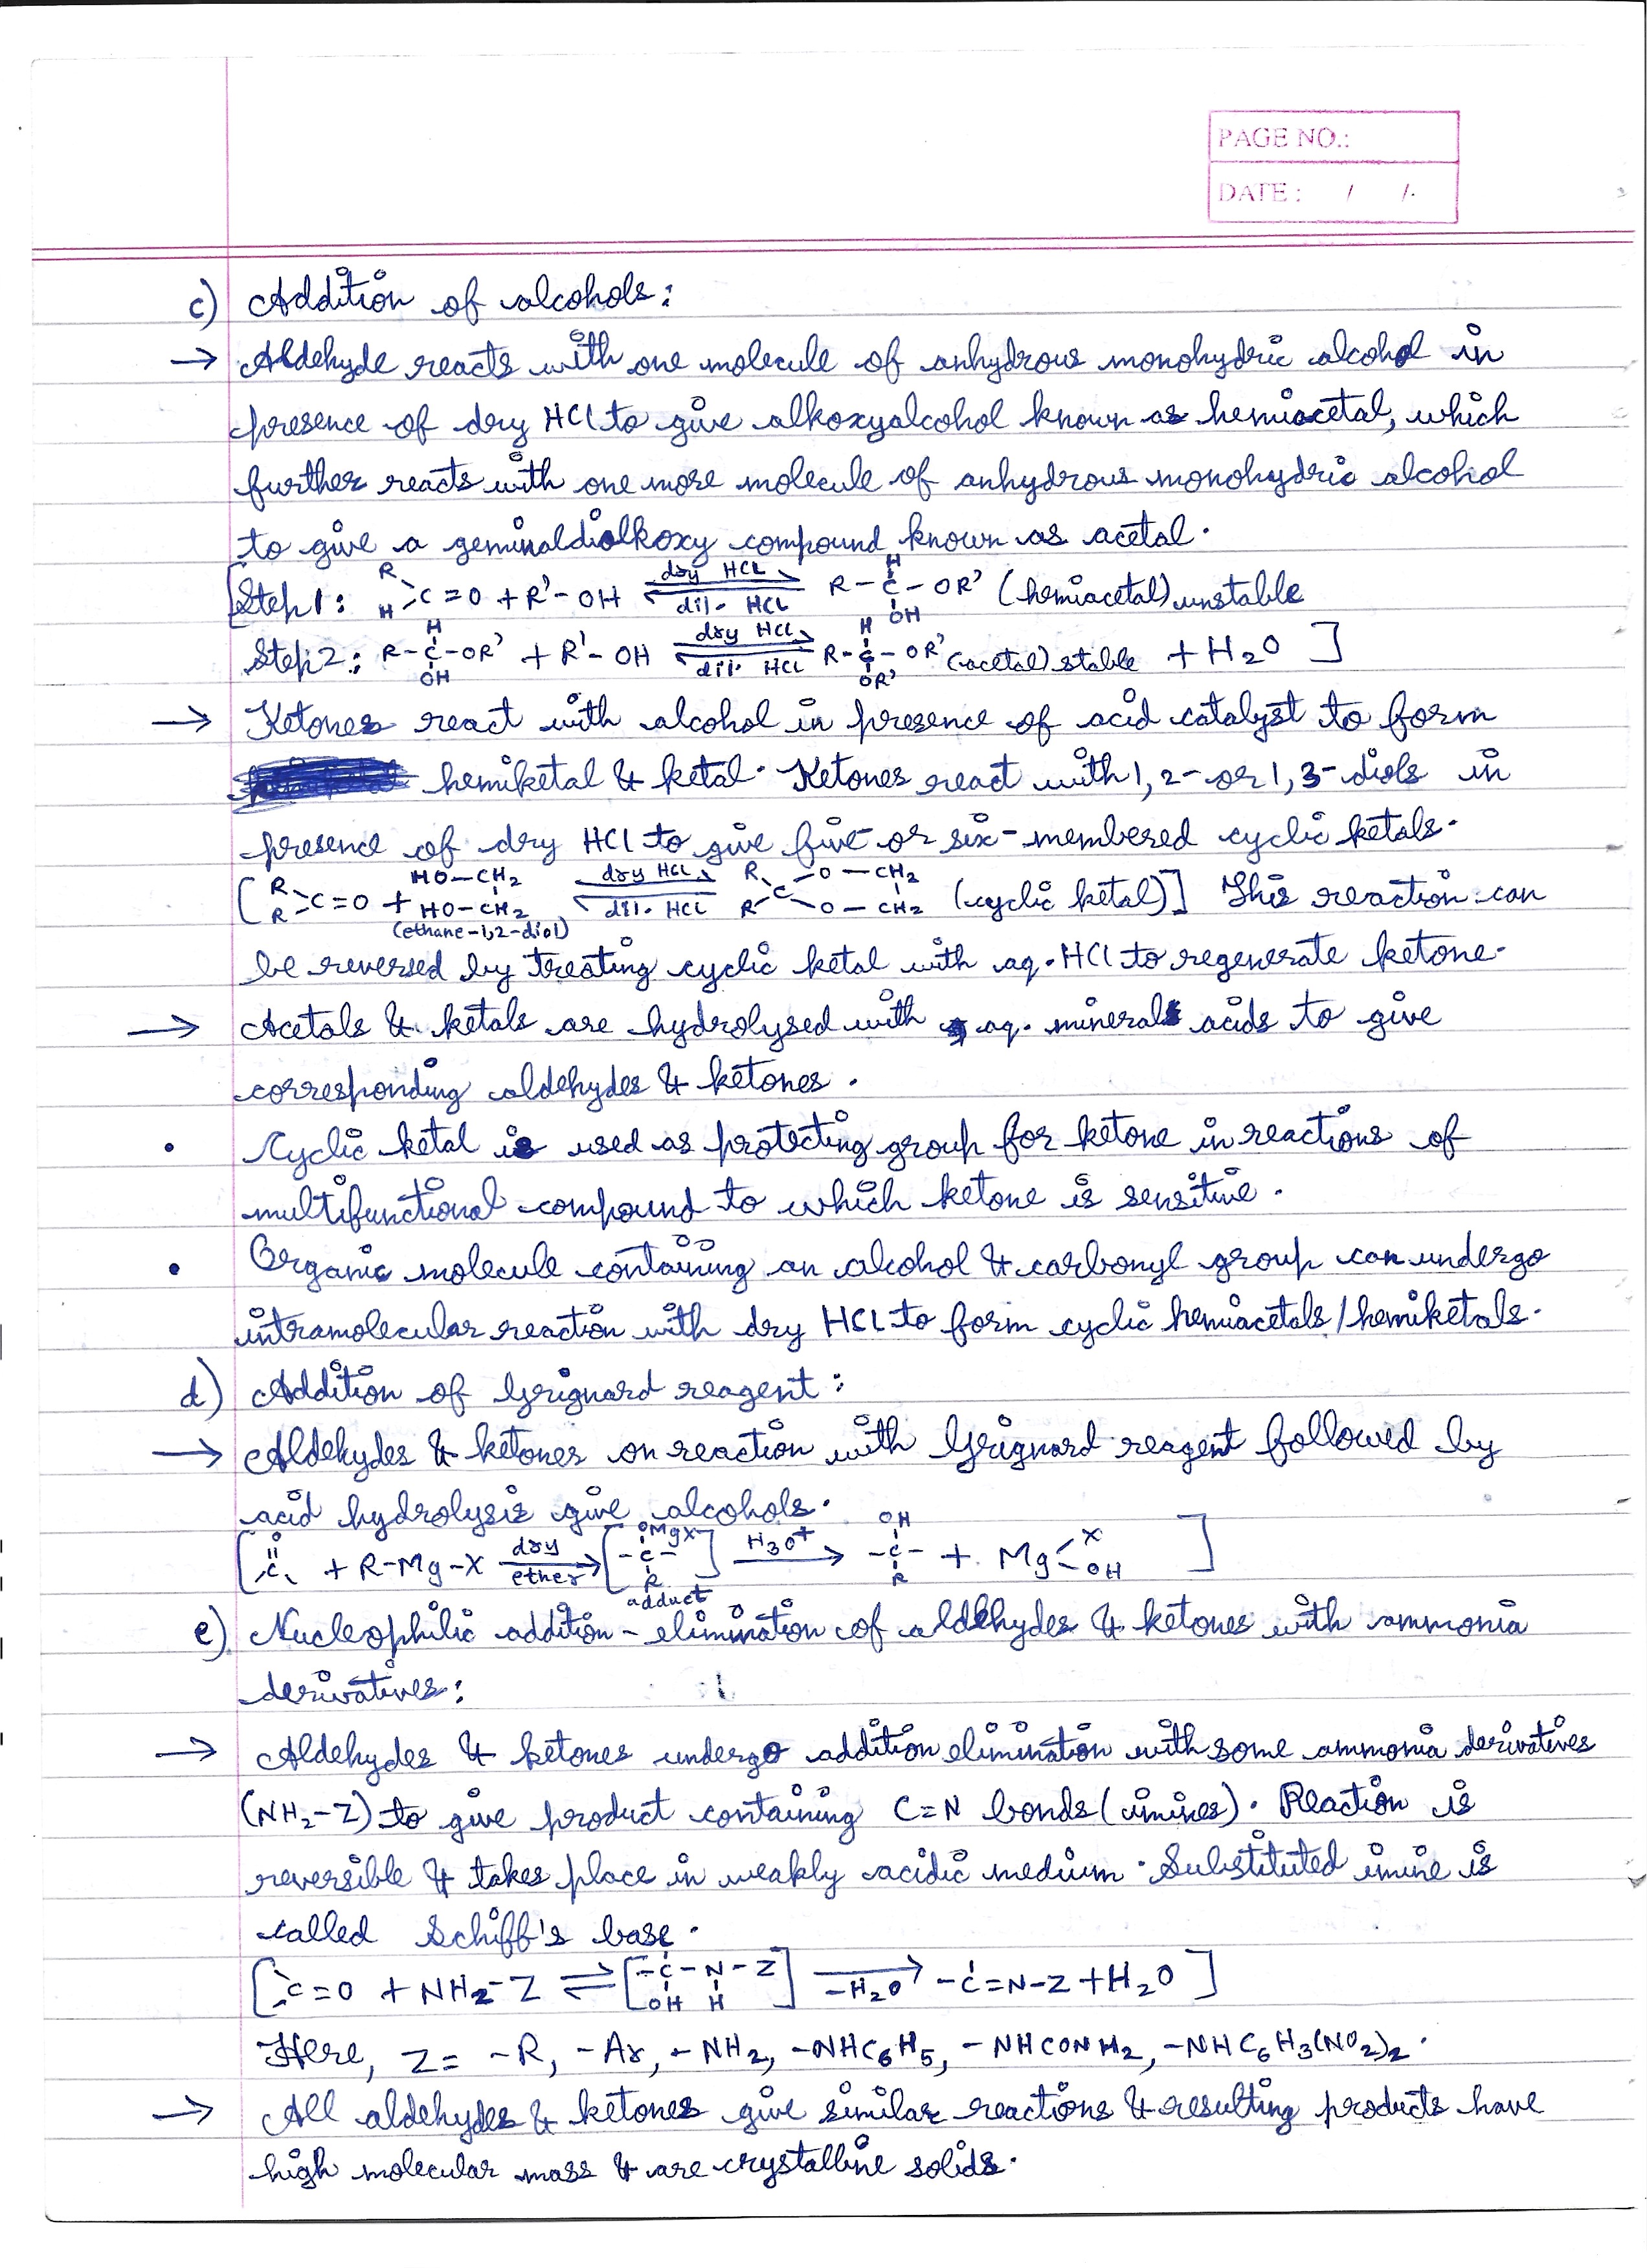 PAGE NO.:
DATE: / /
c) Addition of alcohols:
→ Aldehyde reacts with one molecule of anhydrous monohydric alcohol in
presence of dry HCl to give alkoxyalcohol known as hemiacetal, which
further reacts with one more molecule of anhydrous monohydric alcohol
to give a geminaldialkoxy compound known as acetal.
[Step 1: R H >C=O + R'-OH ⇌ (dry HCl / dil. HCl) R-C(H)(OH)-OR' (hemiacetal) unstable
Step 2: R-C(H)(OH)-OR' + R'-OH ⇌ (dry HCl / dil. HCl) R-C(H)(OR')-OR' (acetal) stable + H2O ]
→ Ketones react with alcohol in presence of acid catalyst to form
hemiketal & ketal. Ketones react with 1, 2- or 1, 3-diols in
presence of dry HCl to give five or six-membered cyclic ketals.
[ R R >C=O + HO-CH2 HO-CH2 (ethane-1,2-diol) ⇌ (dry HCl / dil. HCl) R R >C< O-CH2 O-CH2 (cyclic ketal)] This reaction can
be reversed by treating cyclic ketal with aq. HCl to regenerate ketone.
→ Acetals & ketals are hydrolysed with aq. mineral acids to give
corresponding aldehydes & ketones.
• Cyclic ketal is used as protecting group for ketone in reactions of
multifunctional compound to which ketone is sensitive.
• Organic molecule containing an alcohol & carbonyl group can undergo
intramolecular reaction with dry HCl to form cyclic hemiacetals / hemiketals.
d) Addition of Grignard reagent:
→ Aldehydes & ketones on reaction with Grignard reagent followed by
acid hydrolysis give alcohols.
[ O=C + R-Mg-X → (dry ether) [-C(OMgX)(R)-] adduct → (H3O+) -C(OH)(R)- + Mg< X OH ]
e) Nucleophilic addition-elimination of aldehydes & ketones with ammonia
derivatives:
→ Aldehydes & ketones undergo addition elimination with some ammonia derivatives
(NH2-Z) to give product containing C=N bonds (imines). Reaction is
reversible & takes place in weakly acidic medium. Substituted imine is
called Schiff's base.
[ >C=O + NH2-Z ⇌ [-C(OH)-N(H)-Z] → (-H2O) -C=N-Z + H2O ]
Here, Z = -R, -Ar, -NH2, -NHC6H5, -NHCONH2, -NHC6H3(NO2)2.
→ All aldehydes & ketones give similar reactions & resulting products have
high molecular mass & are crystalline solids.